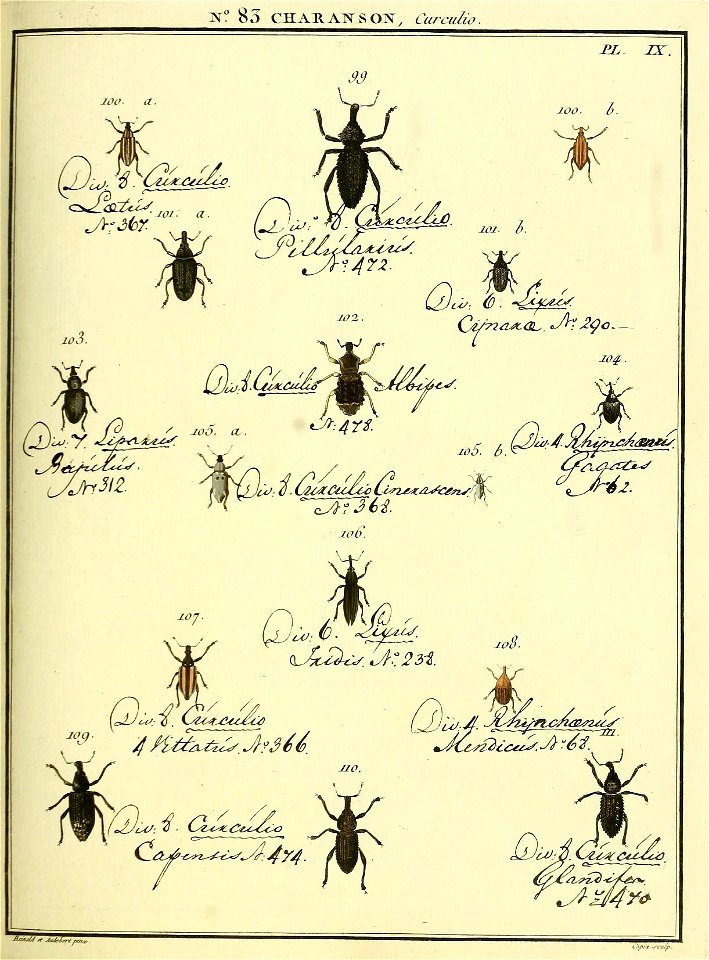 Nº 83 CHARANSON, Curculio.
PL. IX.
99
100. a.
100. b.
Div. 8. Curculio
Lætus.
Nº 367.
101. a.
Div. 8. Curculio
Pillularius.
Nº 472.
101. b.
Div. 6. Lixus.
Cynaræ. Nº 290.
102.
Div. 8. Curculio Albipes.
Nº 478.
103.
Div. 7. Liparus.
Nº 312.
104.
Div. 4. Rhynchænus
Gagates
Nº 62.
105. a.
105. b.
Div. 8. Curculio Cinerascens
Nº 368.
106.
Div. 6. Lixus.
Iridis. Nº 238.
107.
Div. 8. Curculio
4 Vittatus. Nº 366.
108.
Div. 4. Rhynchænus
Mendicus. Nº 68.
109.
Div. 8. Curculio
Capensis N. 474.
110.
111.
Div. 8. Curculio
Glandifer
Nº 470
Reinold et Audebert pinx.
Copia sculp.